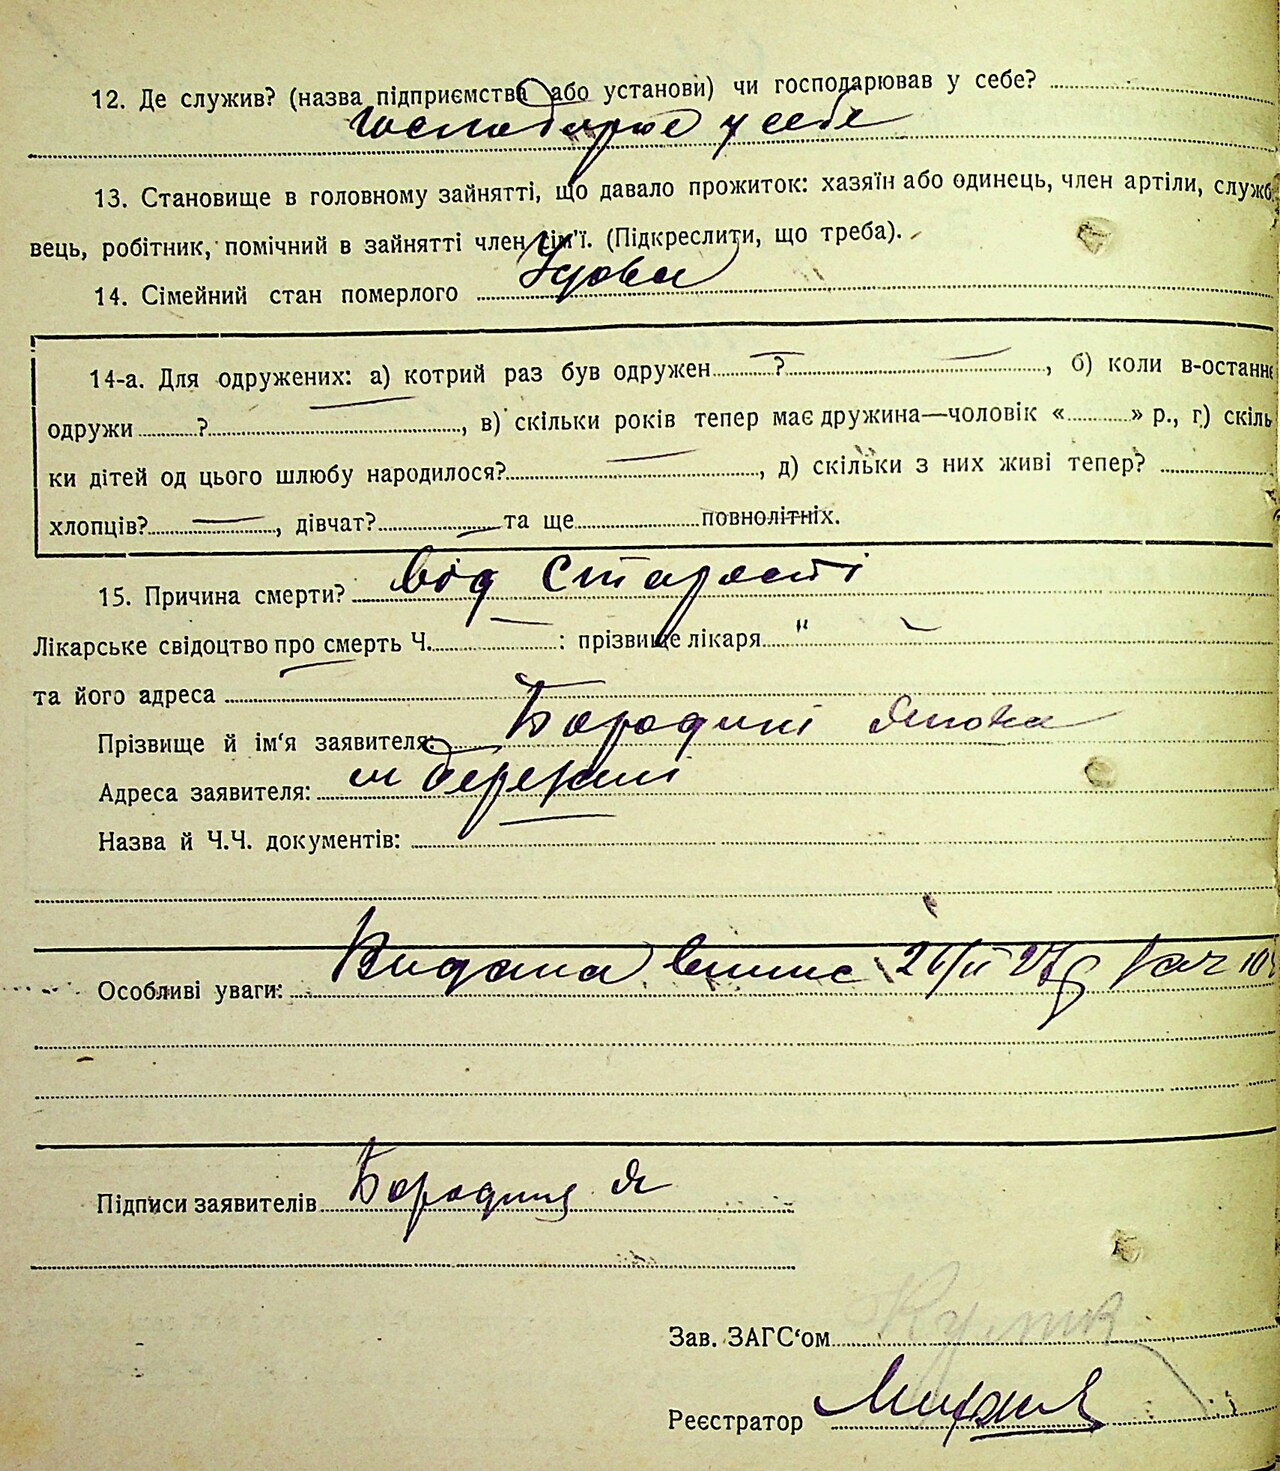 12. Де служив? (назва підприємства або установи) чи господарював у себе?
господарює у себе
13. Становище в головному зайнятті, що давало прожиток: хазяїн або одинець, член артіли, служб
вець, робітник, помічний в зайнятті член сім'ї. (Підкреслити, що треба).
14. Сімейний стан померлого
14-а. Для одружених: а) котрий раз був одружен ? , б) коли в-останнє
одружи ? , в) скільки років тепер має дружина—чоловік « » р., г) скіль
ки дітей од цього шлюбу народилося? , д) скільки з них живі тепер?
хлопців? , дівчат? та ще повнолітніх.
15. Причина смерти? від старості
Лікарське свідоцтво про смерть Ч. : прізвище лікаря "
та його адреса
Прізвище й ім'я заявителя: Бородині Якова
Адреса заявителя: м
Назва й Ч.Ч. документів:
Особливі уваги: Видана 27
Підписи заявителів Я
Зав. ЗАГС'ом
Реєстратор